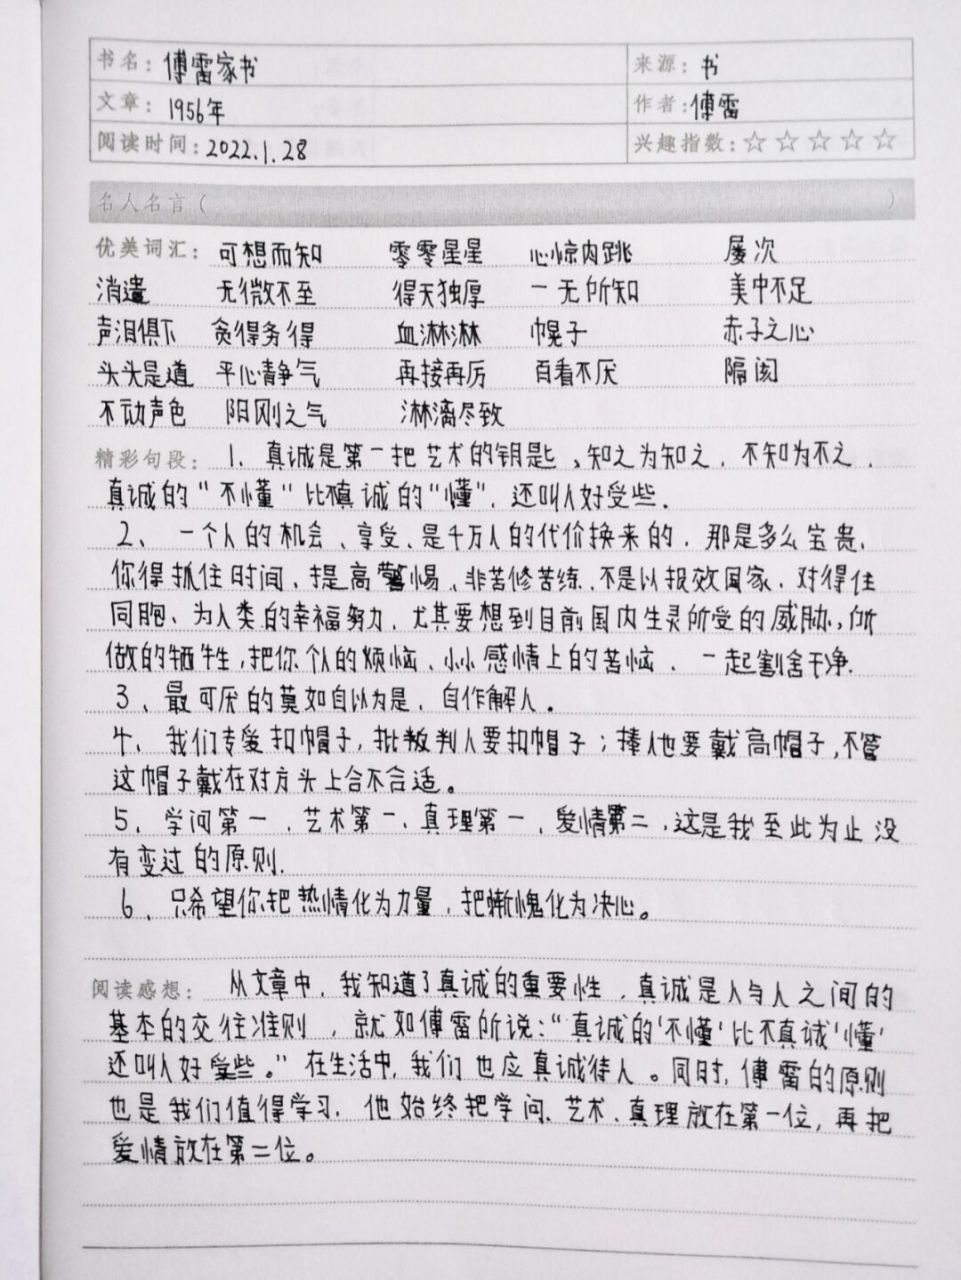 书名：傅雷家书 来源：书
文章：1956年 作者：傅雷
阅读时间：2022.1.28 兴趣指数：☆☆☆☆☆
名人名言（ ）
优美词汇： 可想而知 零零星星 心惊肉跳 屡次
消遣 无微不至 得天独厚 一无所知 美中不足
声泪俱下 贪得务得 血淋淋 幌子 赤子之心
头头是道 平心静气 再接再厉 百看不厌 隔阂
不动声色 阳刚之气 淋漓尽致
精彩句段： 1、真诚是第一把艺术的钥匙、知之为知之，不知为不之，
真诚的“不懂”比不真诚的“懂”，还叫人好受些．
2、一个人的机会、享受、是千万人的代价换来的，那是多么宝贵，
你得抓住时间，提高警惕、非苦修苦练，不是以报效国家，对得住
同胞、为人类的幸福努力，尤其要想到目前国内生灵所受的威胁，所
做的牺牲，把你个人的烦恼、小小感情上的苦恼，一起割舍干净．
3、最可厌的莫如自以为是，自作解人。
4、我们专爱扣帽子，批叛判人要扣帽子；捧人也要戴高帽子，不管
这帽子戴在对方头上合不合适。
5、学问第一，艺术第一，真理第一，爱情第二，这是我至此为止没
有变过的原则．
6、只希望你把热情化为力量，把惭愧化为决心。
阅读感想： 从文章中，我知道了真诚的重要性，真诚是人与人之间的
基本的交往准则，就如傅雷所说：“真诚的‘不懂’比不真诚‘懂’
还叫人好受些。”在生活中，我们也应真诚待人。同时，傅雷的原则
也是我们值得学习，他始终把学问、艺术、真理放在第一位，再把
爱情放在第二位。